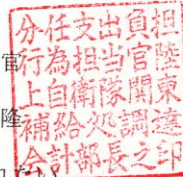 分任支出負担
官
行為担当官陸
上自衛隊関東
隆
補給処調達
会計部長之印